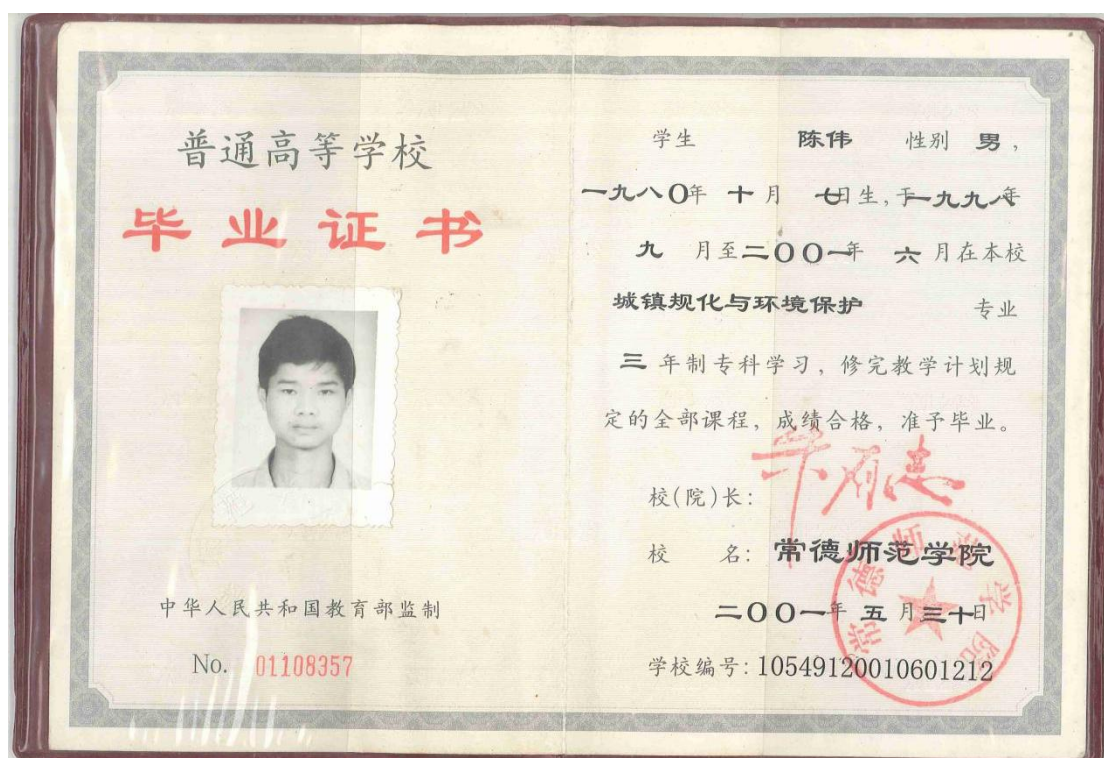 普通高等学校
毕业证书
中华人民共和国教育部监制
No. 01108357
学生 陈伟 性别 男,
一九八〇年 十月 七日生,于一九九八年
九 月至二〇〇一年 六 月在本校
城镇规化与环境保护 专业
三 年制专科学习, 修完教学计划规
定的全部课程, 成绩合格, 准予毕业。
校(院)长:
校 名: 常德师范学院
二〇〇一年 五 月三十日
学校编号: 10549120010601212
常德师范学院